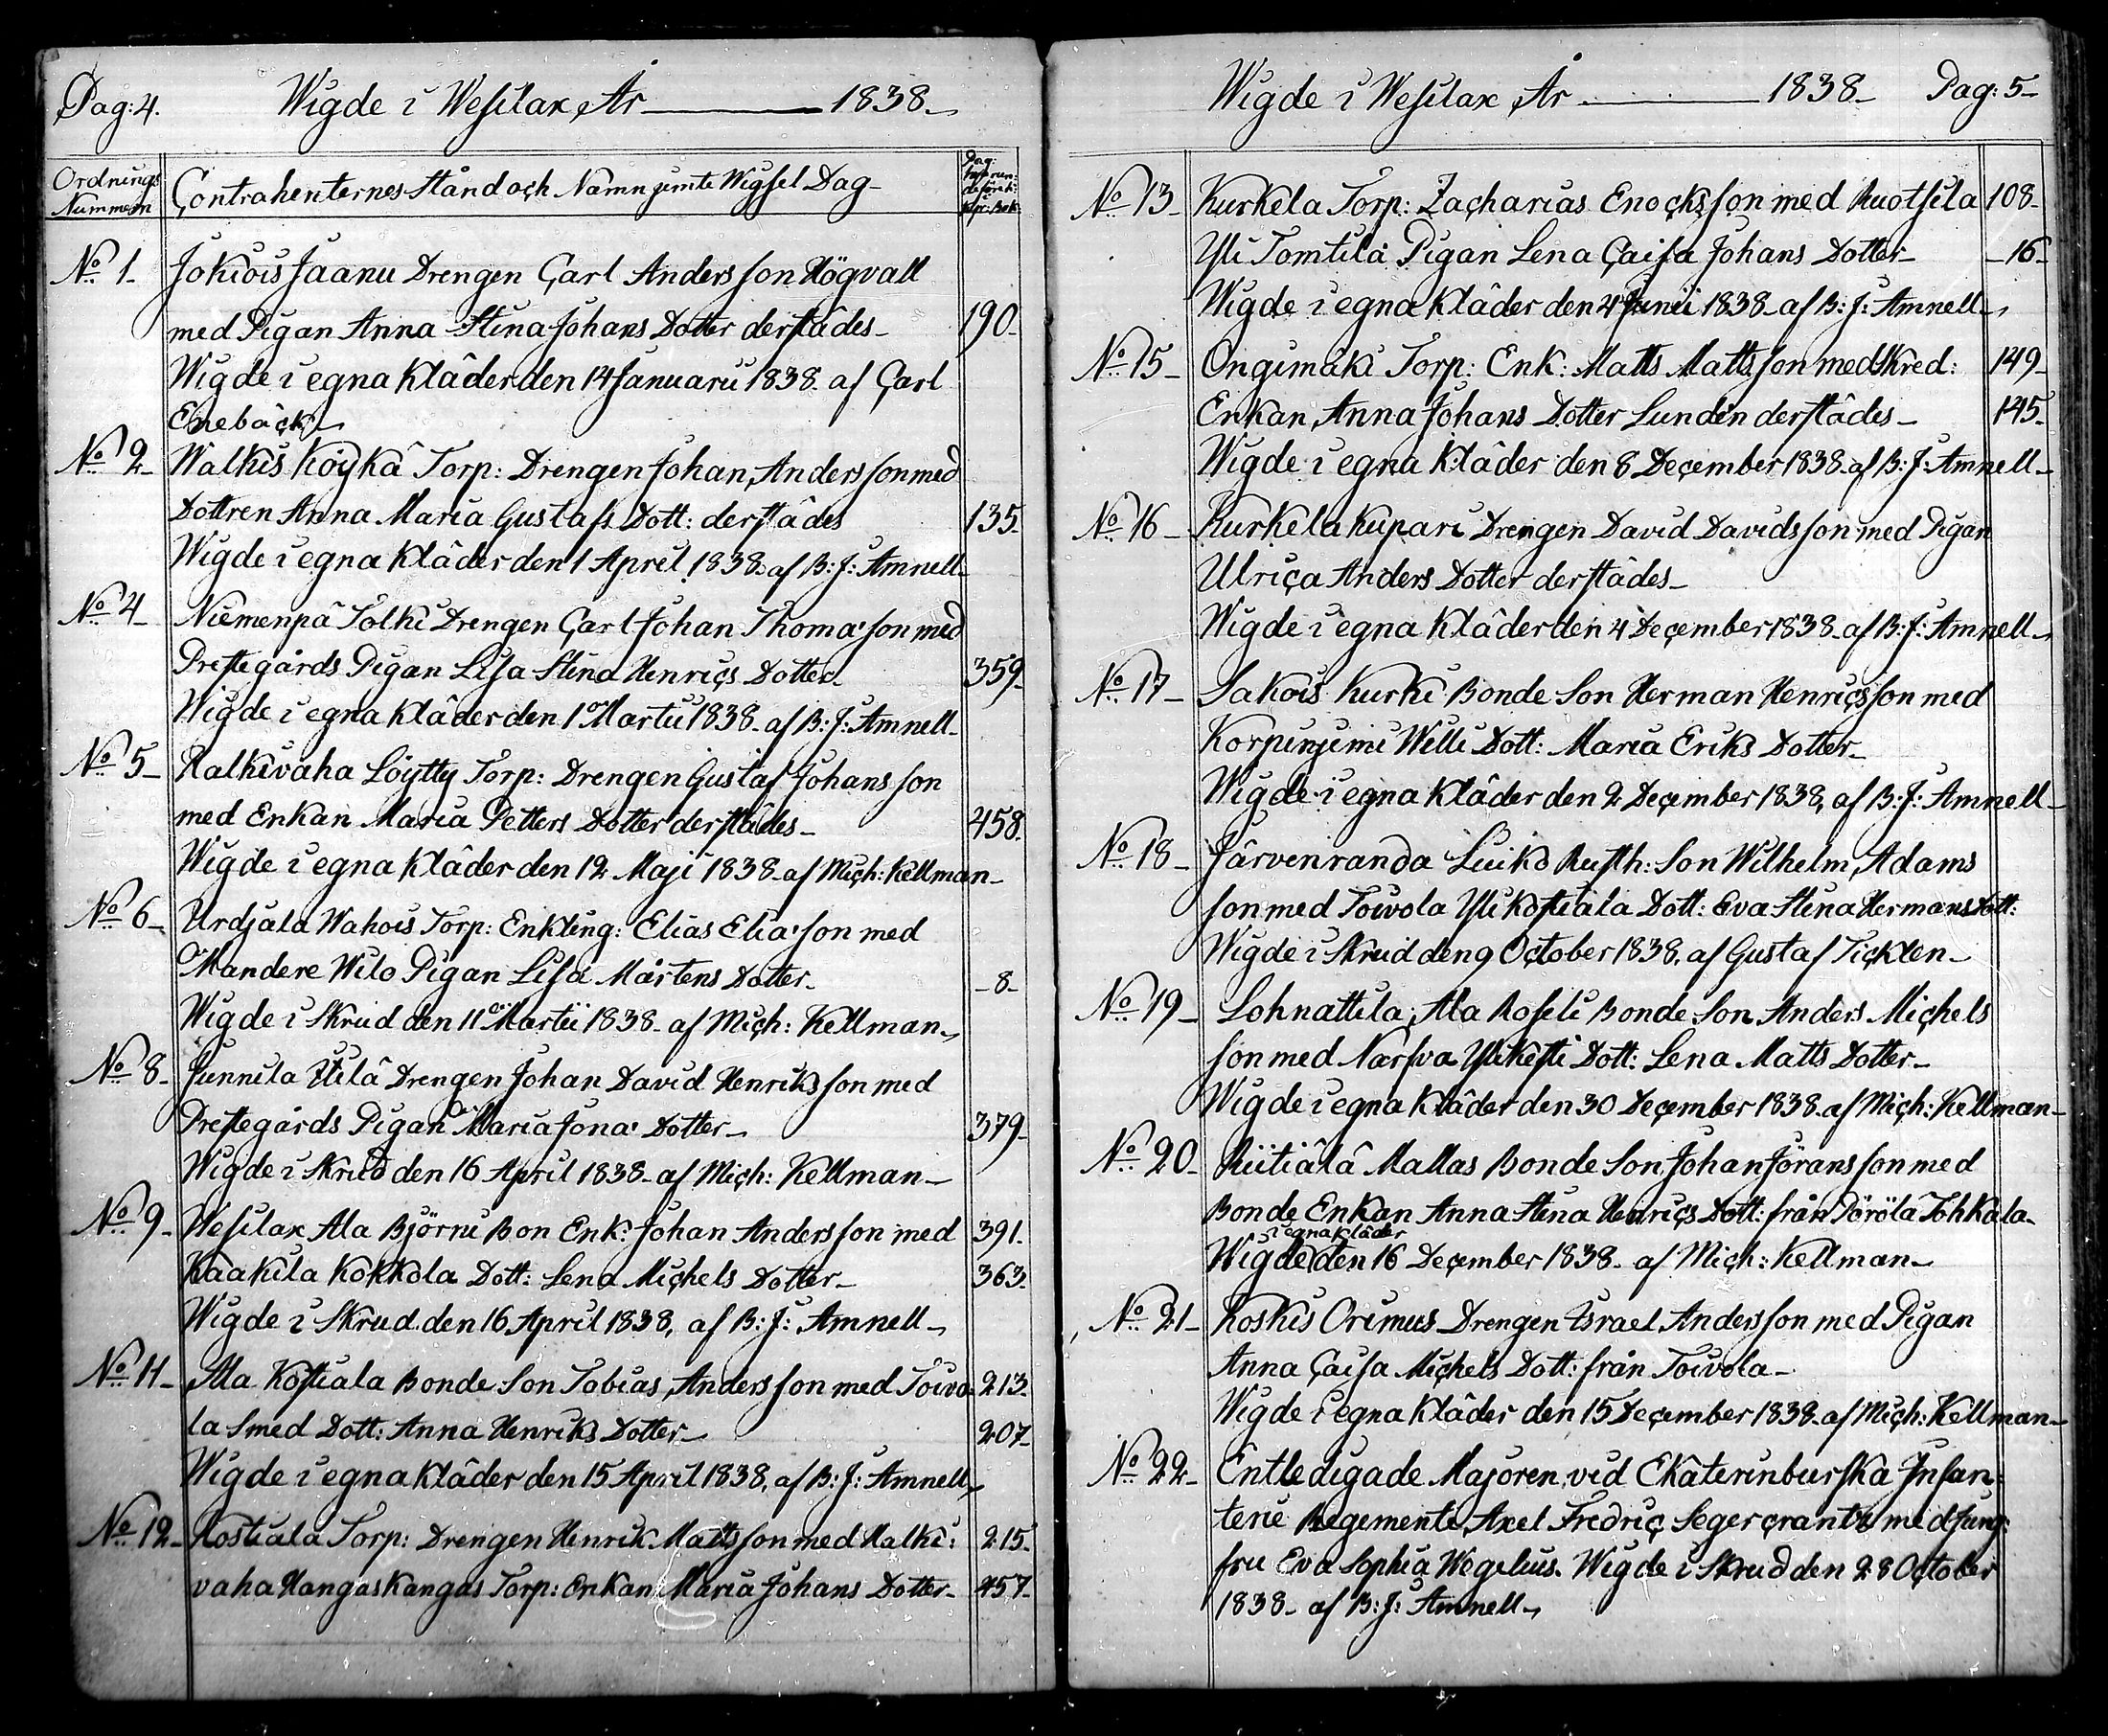 Pag: 4. Wigde i Wesilax År 1838
Ordnings Nummern
Contrahenternes Stånd och Namn jemte Wigsel Dag
No 1 Jokiois Jaanu Drengen Carl Andersson Högvall
med Pigan Anna Stina Johans Dotter derstädes 190
Wigde i egna Kläder den 14 Januarii 1838 af Carl
Enebäck
No 2 Walkis Köykä Torp: Drengen Johan Andersson med
Dottren Anna Maria Gustafs Dott: derstädes 135
Wigde i egna Kläder den 1 April 1838 af B: J: Amnell
No 4 Niemenpä Tolki Drengen Carl Johan Thoma'son med
Prestegårds Pigan Lisa Stina Henrics Dotter 359
Wigde i egna Kläder den 1 Martii 1838 af B: J: Amnell
No 5 Halkivaha Löytty Torp: Drengen Gustaf Johansson
med Enkan Maria Petters Dotter derstädes 458
Wigde i egna Kläder den 12 Maji 1838 af Mich: Kellman
No 6 Urdjala Wahois Torp: Enkling: Elias Elia'son med
Mandere Wilo Pigan Lisa Mårtens Dotter 8
Wigde i Skrud den 11 Martii 1838 af Mich: Kellman
No 8 Junnila Ylilä Drengen Johan David Henriksson med
Prestegårds Pigan Maria Jona' Dotter 379
Wigde i Skrud den 16 April 1838 af Mich: Kellman
No 9 Wesilax Ala Björni Bon Enk: Johan Andersson med 391
Kaakila Kokkola Dott: Lena Michels Dotter 363
Wigde i Skrud den 16 April 1838, af B: J: Amnell
No 11 Ala Kostiala Bonde Son Tobias Andersson med Toivo= 213
la Smed Dott: Anna Henriks Dotter 207
Wigde i egna Kläder den 15 April 1838, af B: J: Amnell
No 12 Kostiala Torp: Drengen Henrik Mattsson med Halki= 215
vaha Hangaskangas Torp: Enkan Maria Johans Dotter 457
Wigde i Wesilax År 1838 Pag: 5
No 13 Kurkela Torp: Zacharias Enocksson med Ruotsila 108
Yli Tomtila Pigan Lena Caisa Johans Dotter 16
Wigde i egna Kläder den 4 Junii 1838 af B: J: Amnell
No 15 Ongimäki Torp: Enk: Matts Mattsson med Skred: 149
Enkan Anna Johans Dotter Lundén derstädes 145
Wigde i egna Kläder den 8 December 1838 af B: J: Amnell
No 16 Kurkela Kupari Drengen David Davidsson med Pigan
Ulrica Anders Dotter derstädes
Wigde i egna Kläder den 4 December 1838 af B: J: Amnell
No 17 Sakois Kurki Bonde Son Herman Henricsson med
Korpinjemi Willi Dott: Maria Eriks Dotter
Wigde i egna Kläder den 2 December 1838, af B: J: Amnell
No 18 Järvenranda Luiko Rusth: Son Wilhelm Adams
son med Toivola Yli Kostiala Dott: Eva Stina Hermans Dott:
Wigde i Skrud den 9 October 1838, af Gustaf Ticklen
No 19 Lohnattila Ala Roseli Bonde Son Anders Michels
son med Narfva Ylikesti Dott: Lena Matts Dotter
Wigde i egna Kläder den 30 December 1838 af Mich: Kellman
No 20 Riitiälä Mallas Bonde Son Johan Jöransson med
Bonde Enkan Anna Stina Henrics Dott: från Pörölä Tohkala
i egna Kläder
Wigde den 16 December 1838 af Mich: Kellman
No 21 Koskis Orimus Drengen Israel Andersson med Pigan
Anna Caisa Michels Dott: från Toivola
Wigde i egna Kläder den 15 December 1838 af Mich: Kellman
No 22 Entledigade Majoren vid Ekaterinburska Infan=
terie Regemente Axel Fredric Segercrantz med Jung=
fru Eva Sophia Wegelius. Wigde i Skrud den 28 October
1838 af B: J: Amnell